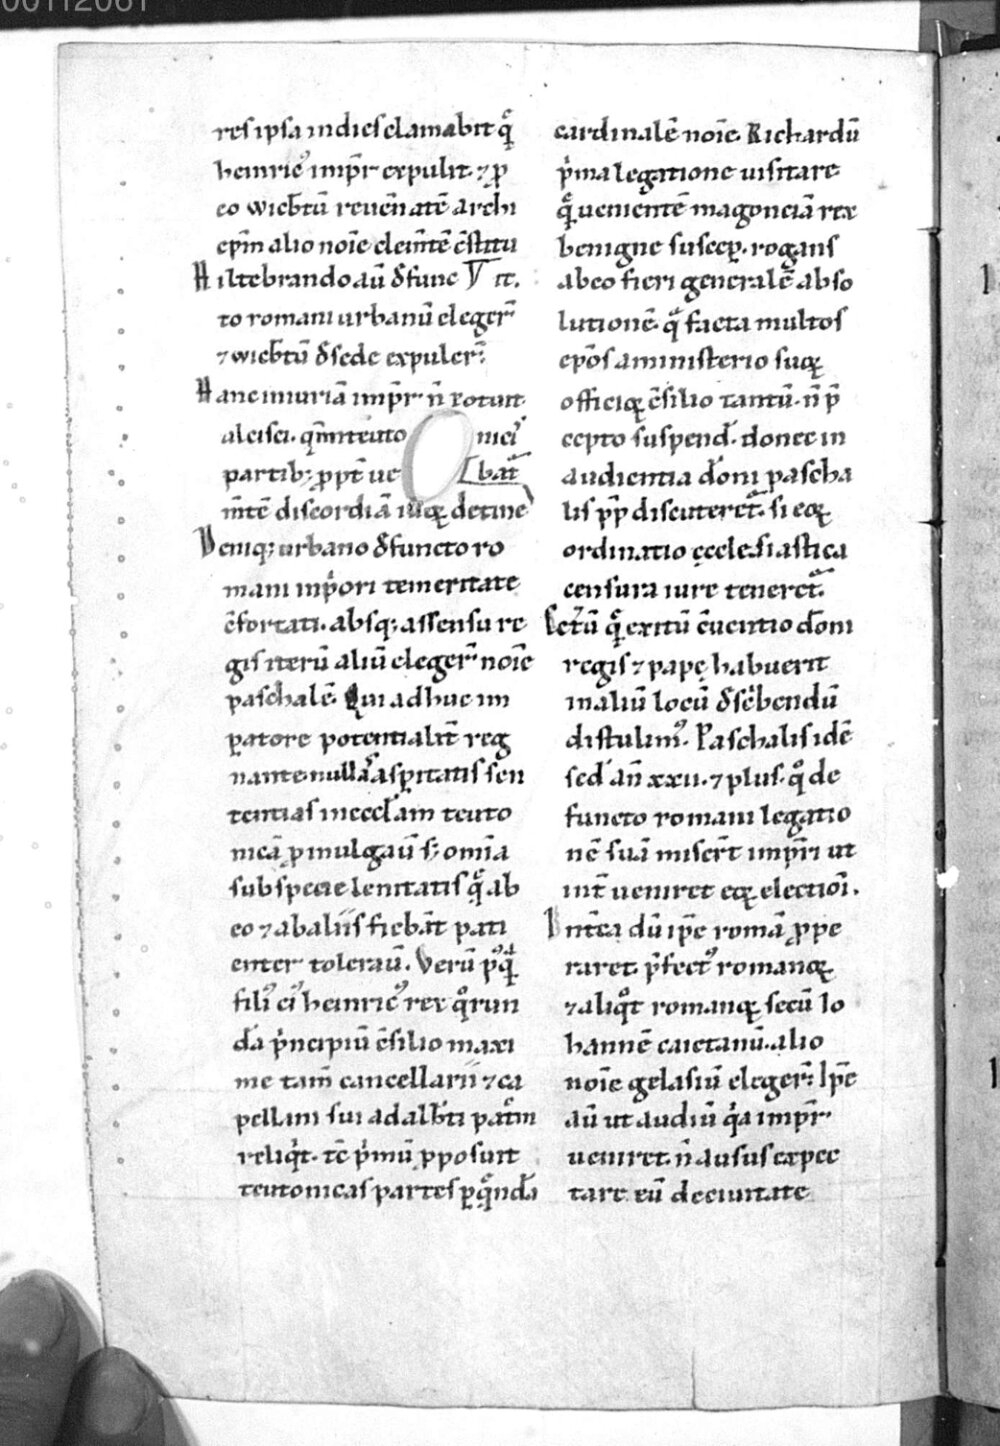 res ipsa in dies clamabit. qᷓ
heinricꝰ imp̄r expulit. ⁊ ꝓ
eo wicb̄tū reuēn atē archi
ep̄m alio noīe clem̄tē ↄ̄stitu
Hiltebrando aū defunc it.
to romani urbanū eleger̄
⁊ wicb̄tū de sede expuler̄.
Hanc iniuriā imp̄r n̄ potuit
alcisci. qm̄ in teuto nicis
partibꝫ ꝓpt̄ ue bat̄
m̄tē discordiā detine
Deniqꝫ urbano defuncto ro
mani inp̄ori temeritate
ↄ̄fortati. absqꝫ assensu re
gis iterū aliū eleger̄ noīe
paschalē. Qui adhuc im
ꝑatore potentialit̄ reg
nante nullā asꝑitatis sen
tentias in eccl̄am teuto
nicā ꝓmulgaū sꝫ om̄ia
sub specie lenitatis qᷓ ab
eo ⁊ ab aliis fieb̄at pati
enter toleraū. Verū pꝰqᷓ
filiꝰ eiꝰ heinricꝰ rex qͦrun
dā pͥncipiū ↄ̄silio maxi
me tam̄ cancellarii ⁊ ca
pellani sui adalb̄ti pat̄m
reliqͥt. tē pͥmū ꝓposuit
teutonicas partes ꝑ qᷓndā
cardinalē noīe Richardū
pͥma legatione uisitare
qᷓ ueniente magonciā rex
benigne suscep̄. rogans
ab eo fieri generalē abso
lutionē. qᷓ facta multos
ep̄os a ministerio suoꝝ
officioꝝ ↄ̄silio tantū. n̄ p̄
cepto suspend̄. donec in
audientia dōni pascha
lis pp̄ discuteret̄. si eoꝝ
ordinatio ęcclesiastica
censura iure teneret̄.
Cet̄ū qᷓ exitū ↄ̄uentio dōni
regis ⁊ papę habuerit
in aliū locū descͥbendū
distulimꝰ. Paschalis idē
sed̄ an̄ xxii. ⁊ plus. qͦ de
functo romani legatio
nē suā miser̄t imp̄ri ut
int̄ ueniret eoꝝ electioī.
Int̄ea dū ip̄e romā ꝓpe
raret. p̄fectꝰ romanoꝝ
⁊ aliqͦt romanoꝝ secū Io
hannē caietanū. alio
noīe gelasiū eleger̄. Ip̄e
aū ut audiū qͥa imp̄r
ueniret. n̄ ausus expec
tare eū de ciuitate